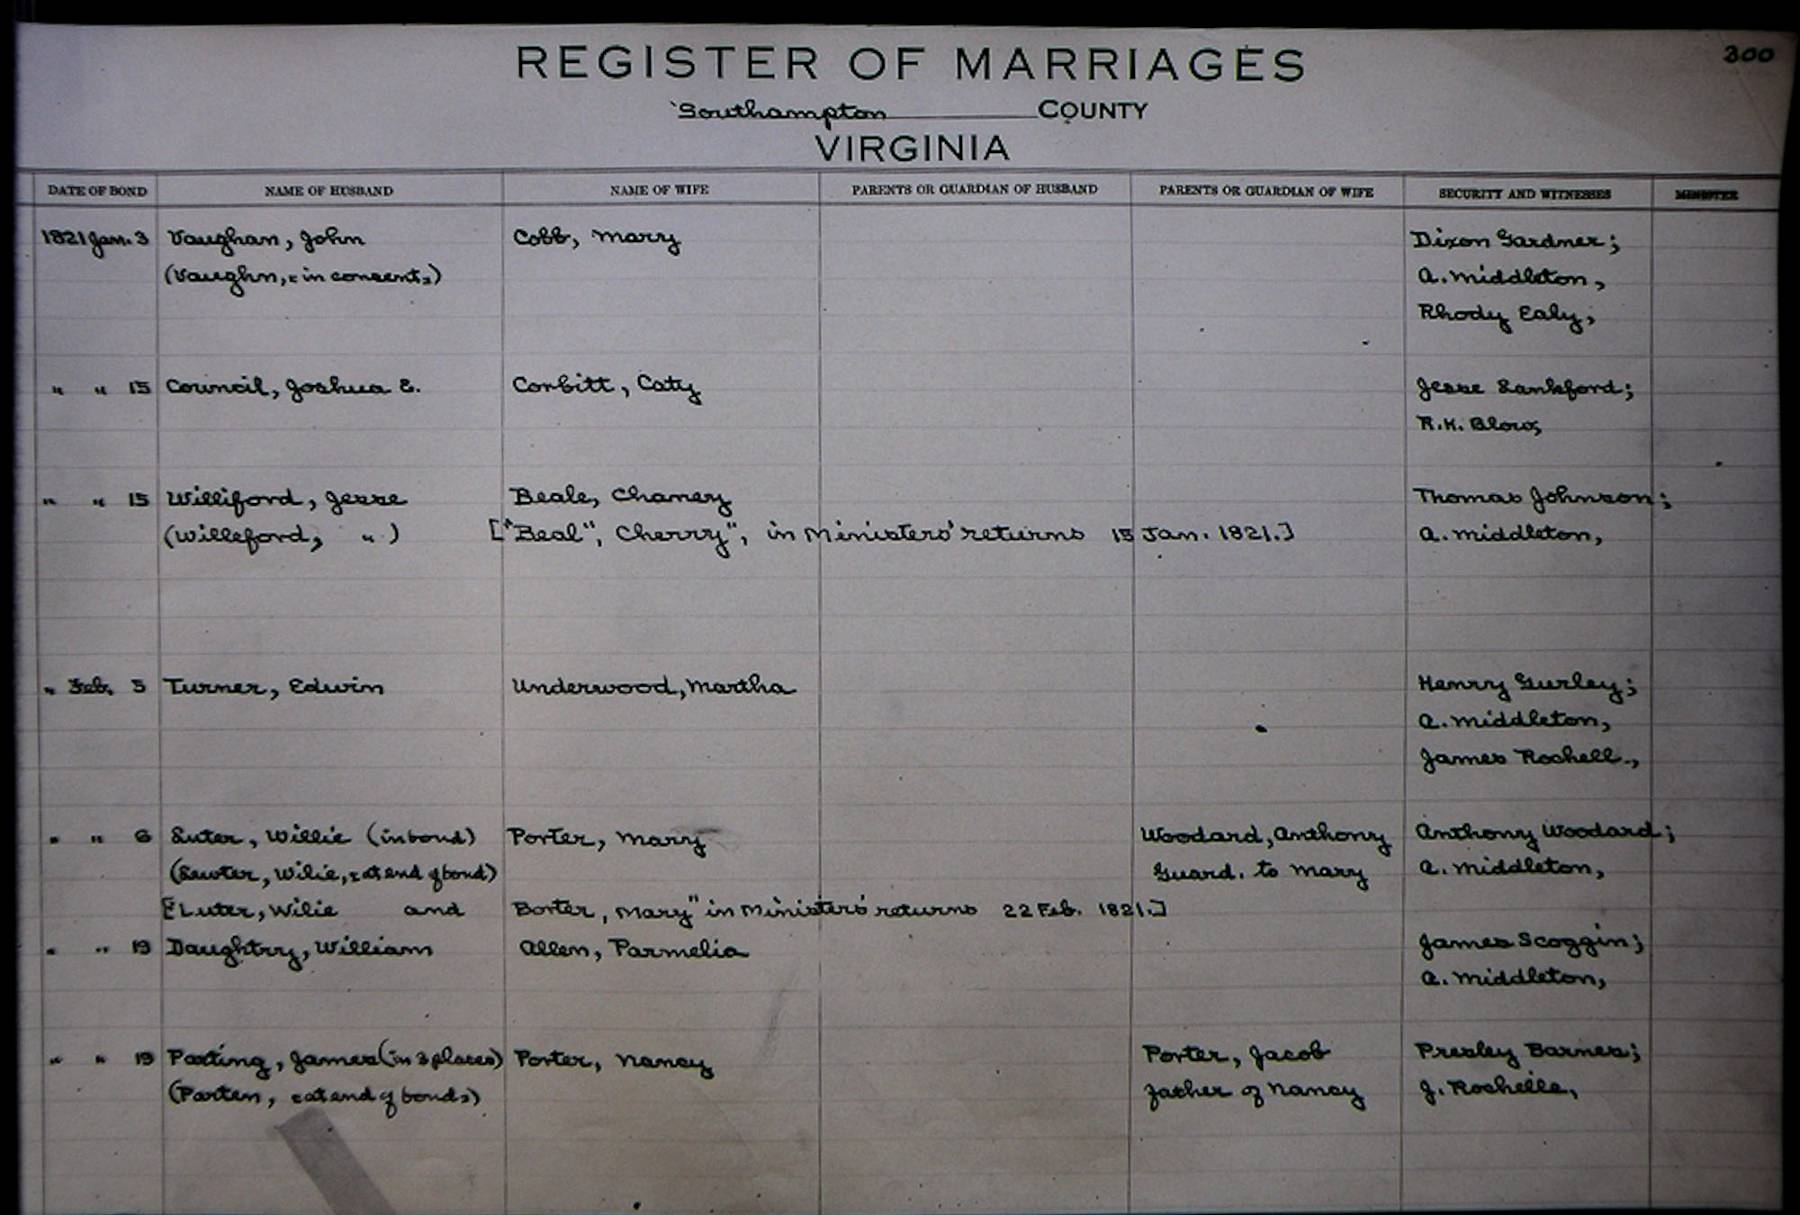 300
REGISTER OF MARRIAGES
Southampton COUNTY
VIRGINIA
DATE OF BOND NAME OF HUSBAND NAME OF WIFE PARENTS OR GUARDIAN OF HUSBAND PARENTS OR GUARDIAN OF WIFE SECURITY AND WITNESSES MINISTER
1821 Jan. 3 Vaughan, John Cobb, Mary Dixon Gardner;
(Vaughn, in consent,) A. Middleton,
Rhody Ealy,
" " 15 Council, Joshua E. Corbitt, Caty Jesse Lankford;
R.K. Blow,
" " 15 Williford, Jesse Beale, Chaney Thomas Johnson;
(Willeford, ") ["Beal", Cherry", in Ministers' returns 15 Jan. 1821.] A. Middleton,
" Feb. 5 Turner, Edwin Underwood, Martha Henry Gurley;
A. Middleton,
James Rochell.,
" " 6 Luter, Willie (in bond) Porter, Mary Woodard, Anthony Anthony Woodard;
(Lewter, Wilie, at end of bond) Guard. to Mary A. Middleton,
[Luter, Wilie and Borter, Mary" in Ministers' returns 22 Feb. 1821.]
" " 19 Daughtry, William Allen, Parmelia James Scoggin;
A. Middleton,
" " 19 Parting, James (in 3 places) Porter, Nancy Porter, Jacob Presley Barnes;
(Parten, at end of bond) father of Nancy J. Rochelle,